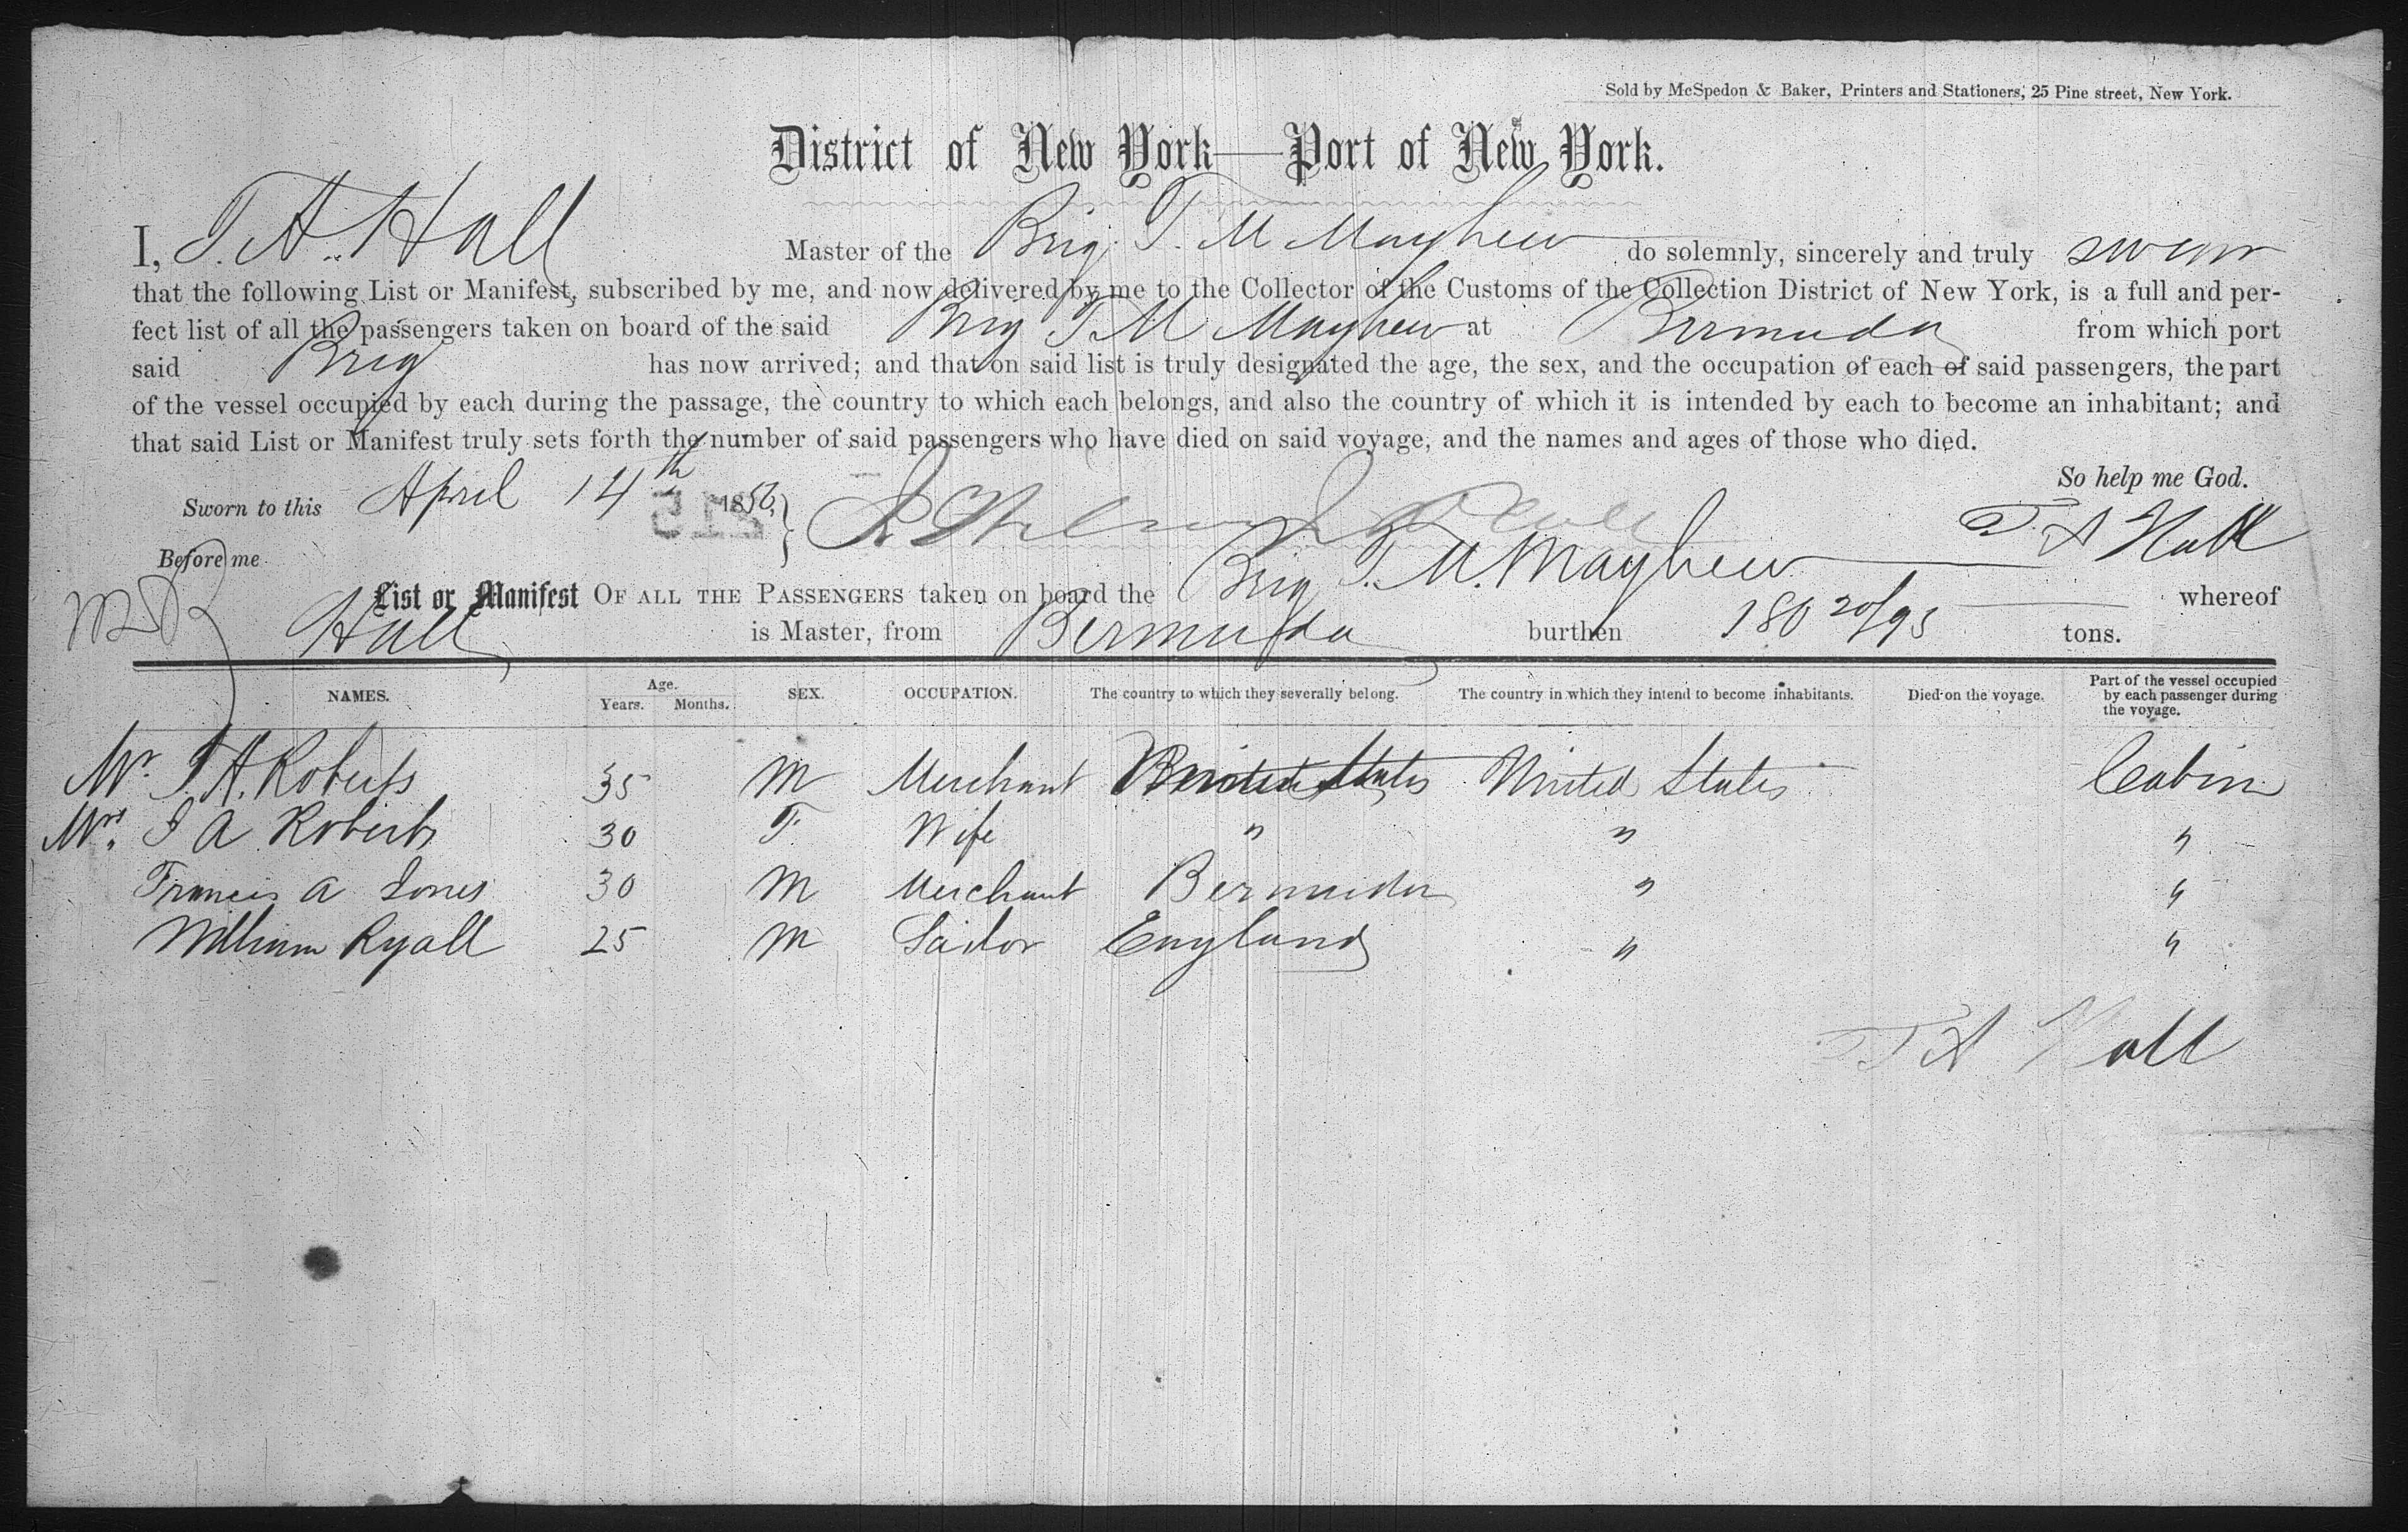 Sold by McSpedon & Baker, Printers and Stationers, 25 Pine street, New York.
District of New York—Port of New York.
I, T. A. Hall Master of the Brig T. M Mayhew do solemnly, sincerely and truly swear
that the following List or Manifest, subscribed by me, and now delivered by me to the Collector of the Customs of the Collection District of New York, is a full and per-
fect list of all the passengers taken on board of the said Brig T M Mayhew at Bermuda from which port
said Brig has now arrived; and that on said list is truly designated the age, the sex, and the occupation of each of said passengers, the part
of the vessel occupied by each during the passage, the country to which each belongs, and also the country of which it is intended by each to become an inhabitant; and
that said List or Manifest truly sets forth the number of said passengers who have died on said voyage, and the names and ages of those who died.
So help me God.
Sworn to this April 14th 1856, } T A Hall
Before me
List or Manifest OF ALL THE PASSENGERS taken on board the Brig T. M. Mayhew whereof
Hall is Master, from Bermuda burthen 180 20/95 tons.
NAMES. Age. Years. Months. SEX. OCCUPATION. The country to which they severally belong. The country in which they intend to become inhabitants. Died on the voyage. Part of the vessel occupied by each passenger during the voyage.
Mr. T. A. Roberts 35 M Merchant United States United States Cabin
Mrs. T A Roberts 30 F. Wife " " "
Francis A Jones 30 M Merchant Bermuda " "
William Ryall 25 M Sailor England " "
T A Hall